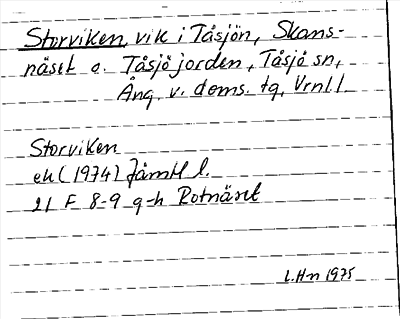 Storviken, vik i Tåsjön, Skans-
näset o. Tåsjöjorden, Tåsjö sn,
Ång. v. doms. tg, Vrnl l
Storviken
ek (1974) Jämtl l.
21 F 8-9 g-h Rotnäset
L.Hn 1975